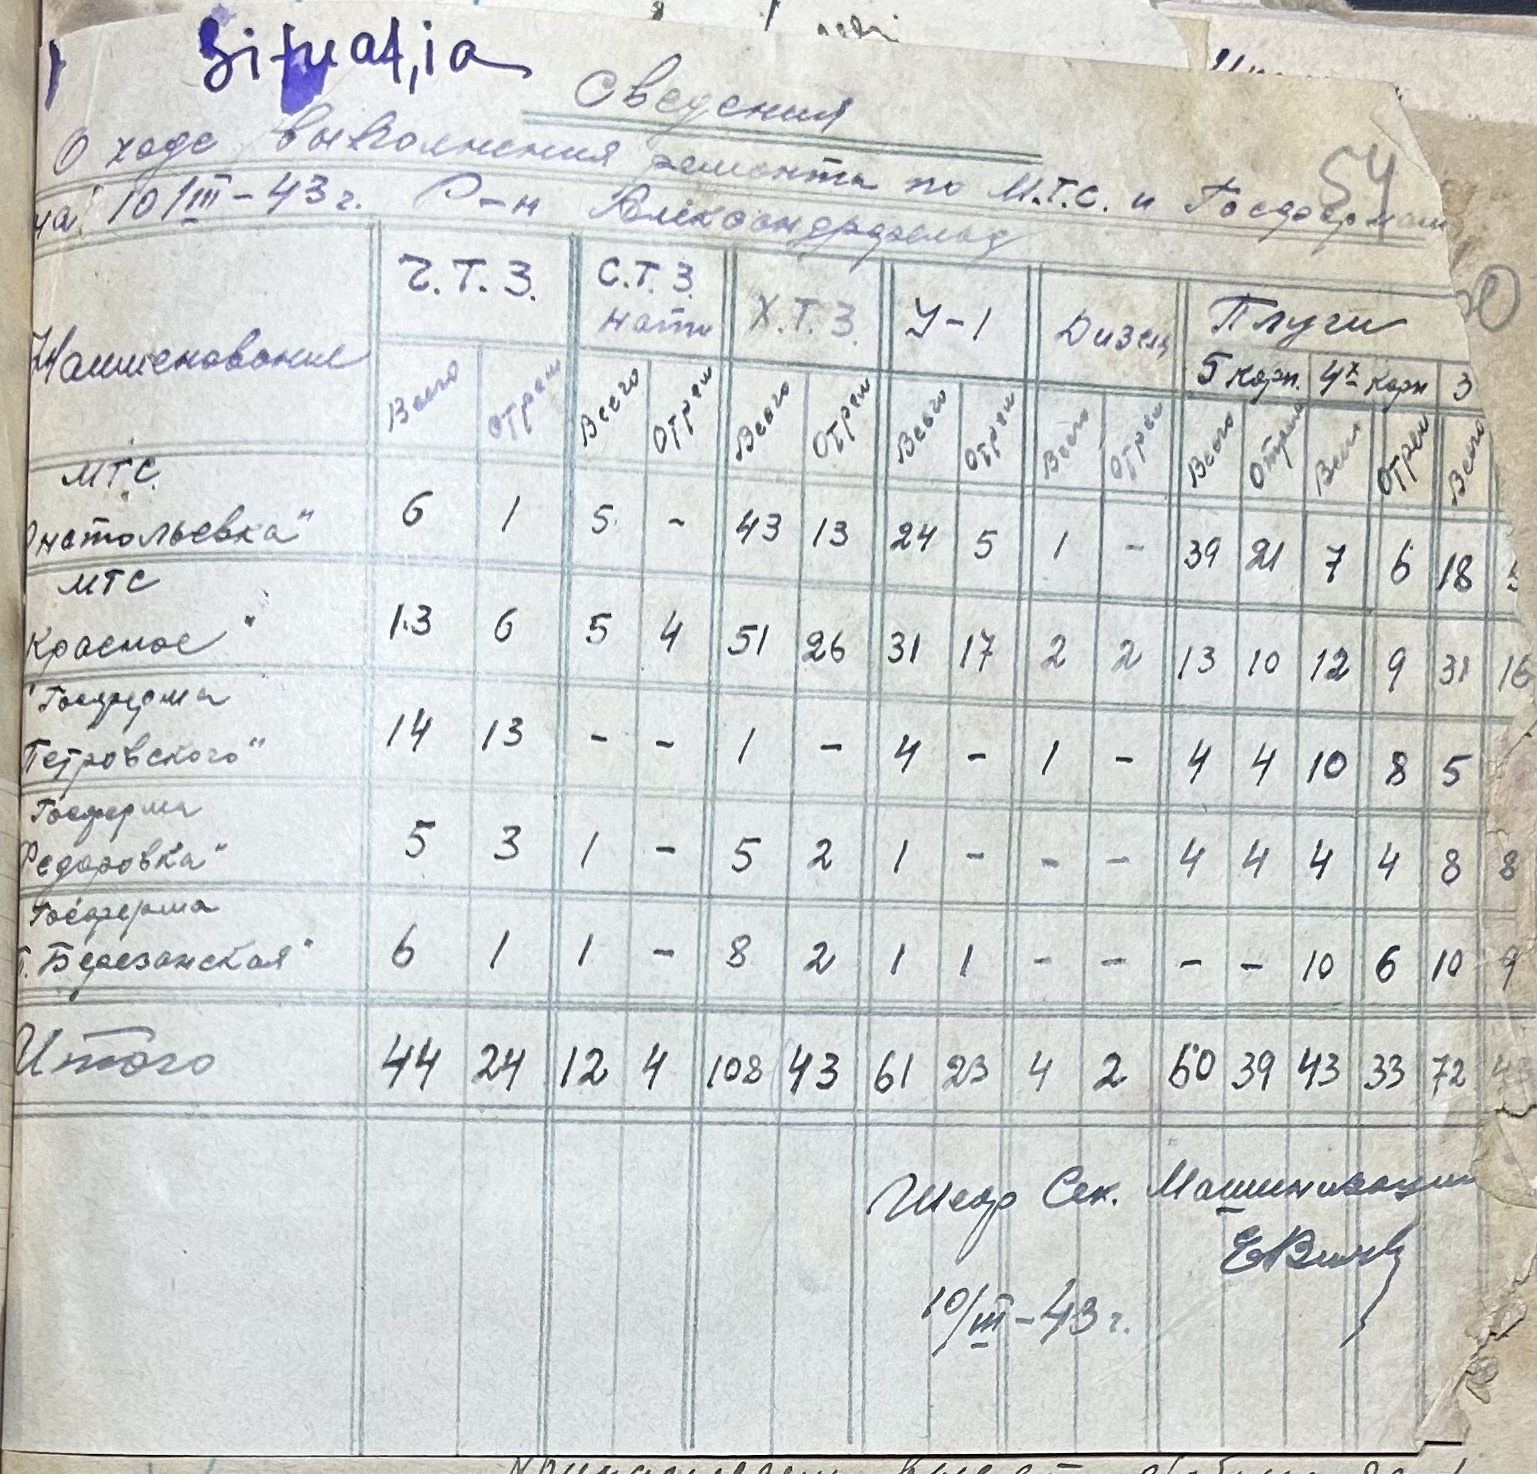 Situația
Сведения
О ходе выполнения ремонта по М.Т.С. и Госфермам
на 10/III-43 г. Р-н Александрфельд
54
Наименование Ч.Т.З. С.Т.З. нати Х.Т.З. У-1 Дизель Плуги
5 корп. 4х корп 3
Всего отрем Всего отрем Всего отрем Всего отрем Всего отрем Всего отрем Всего отрем Всего
МТС
Анатольевка" 6 1 5 - 43 13 24 5 1 - 39 21 7 6 18
МТС
Красное" 13 6 5 4 51 26 31 17 2 2 13 10 12 9 31 16
Госферма
Петровского" 14 13 - - 1 - 4 - 1 - 4 4 10 8 5
Госферма
Федоровка" 5 3 1 - 5 2 1 - - - 4 4 4 4 8 8
Госферма
Т. Березанская" 6 1 1 - 8 2 1 1 - - - - 10 6 10 9
Итого 44 24 12 4 108 43 61 23 4 2 60 39 43 33 72
Шеф Сек. Машинизации
10/III-43 г.